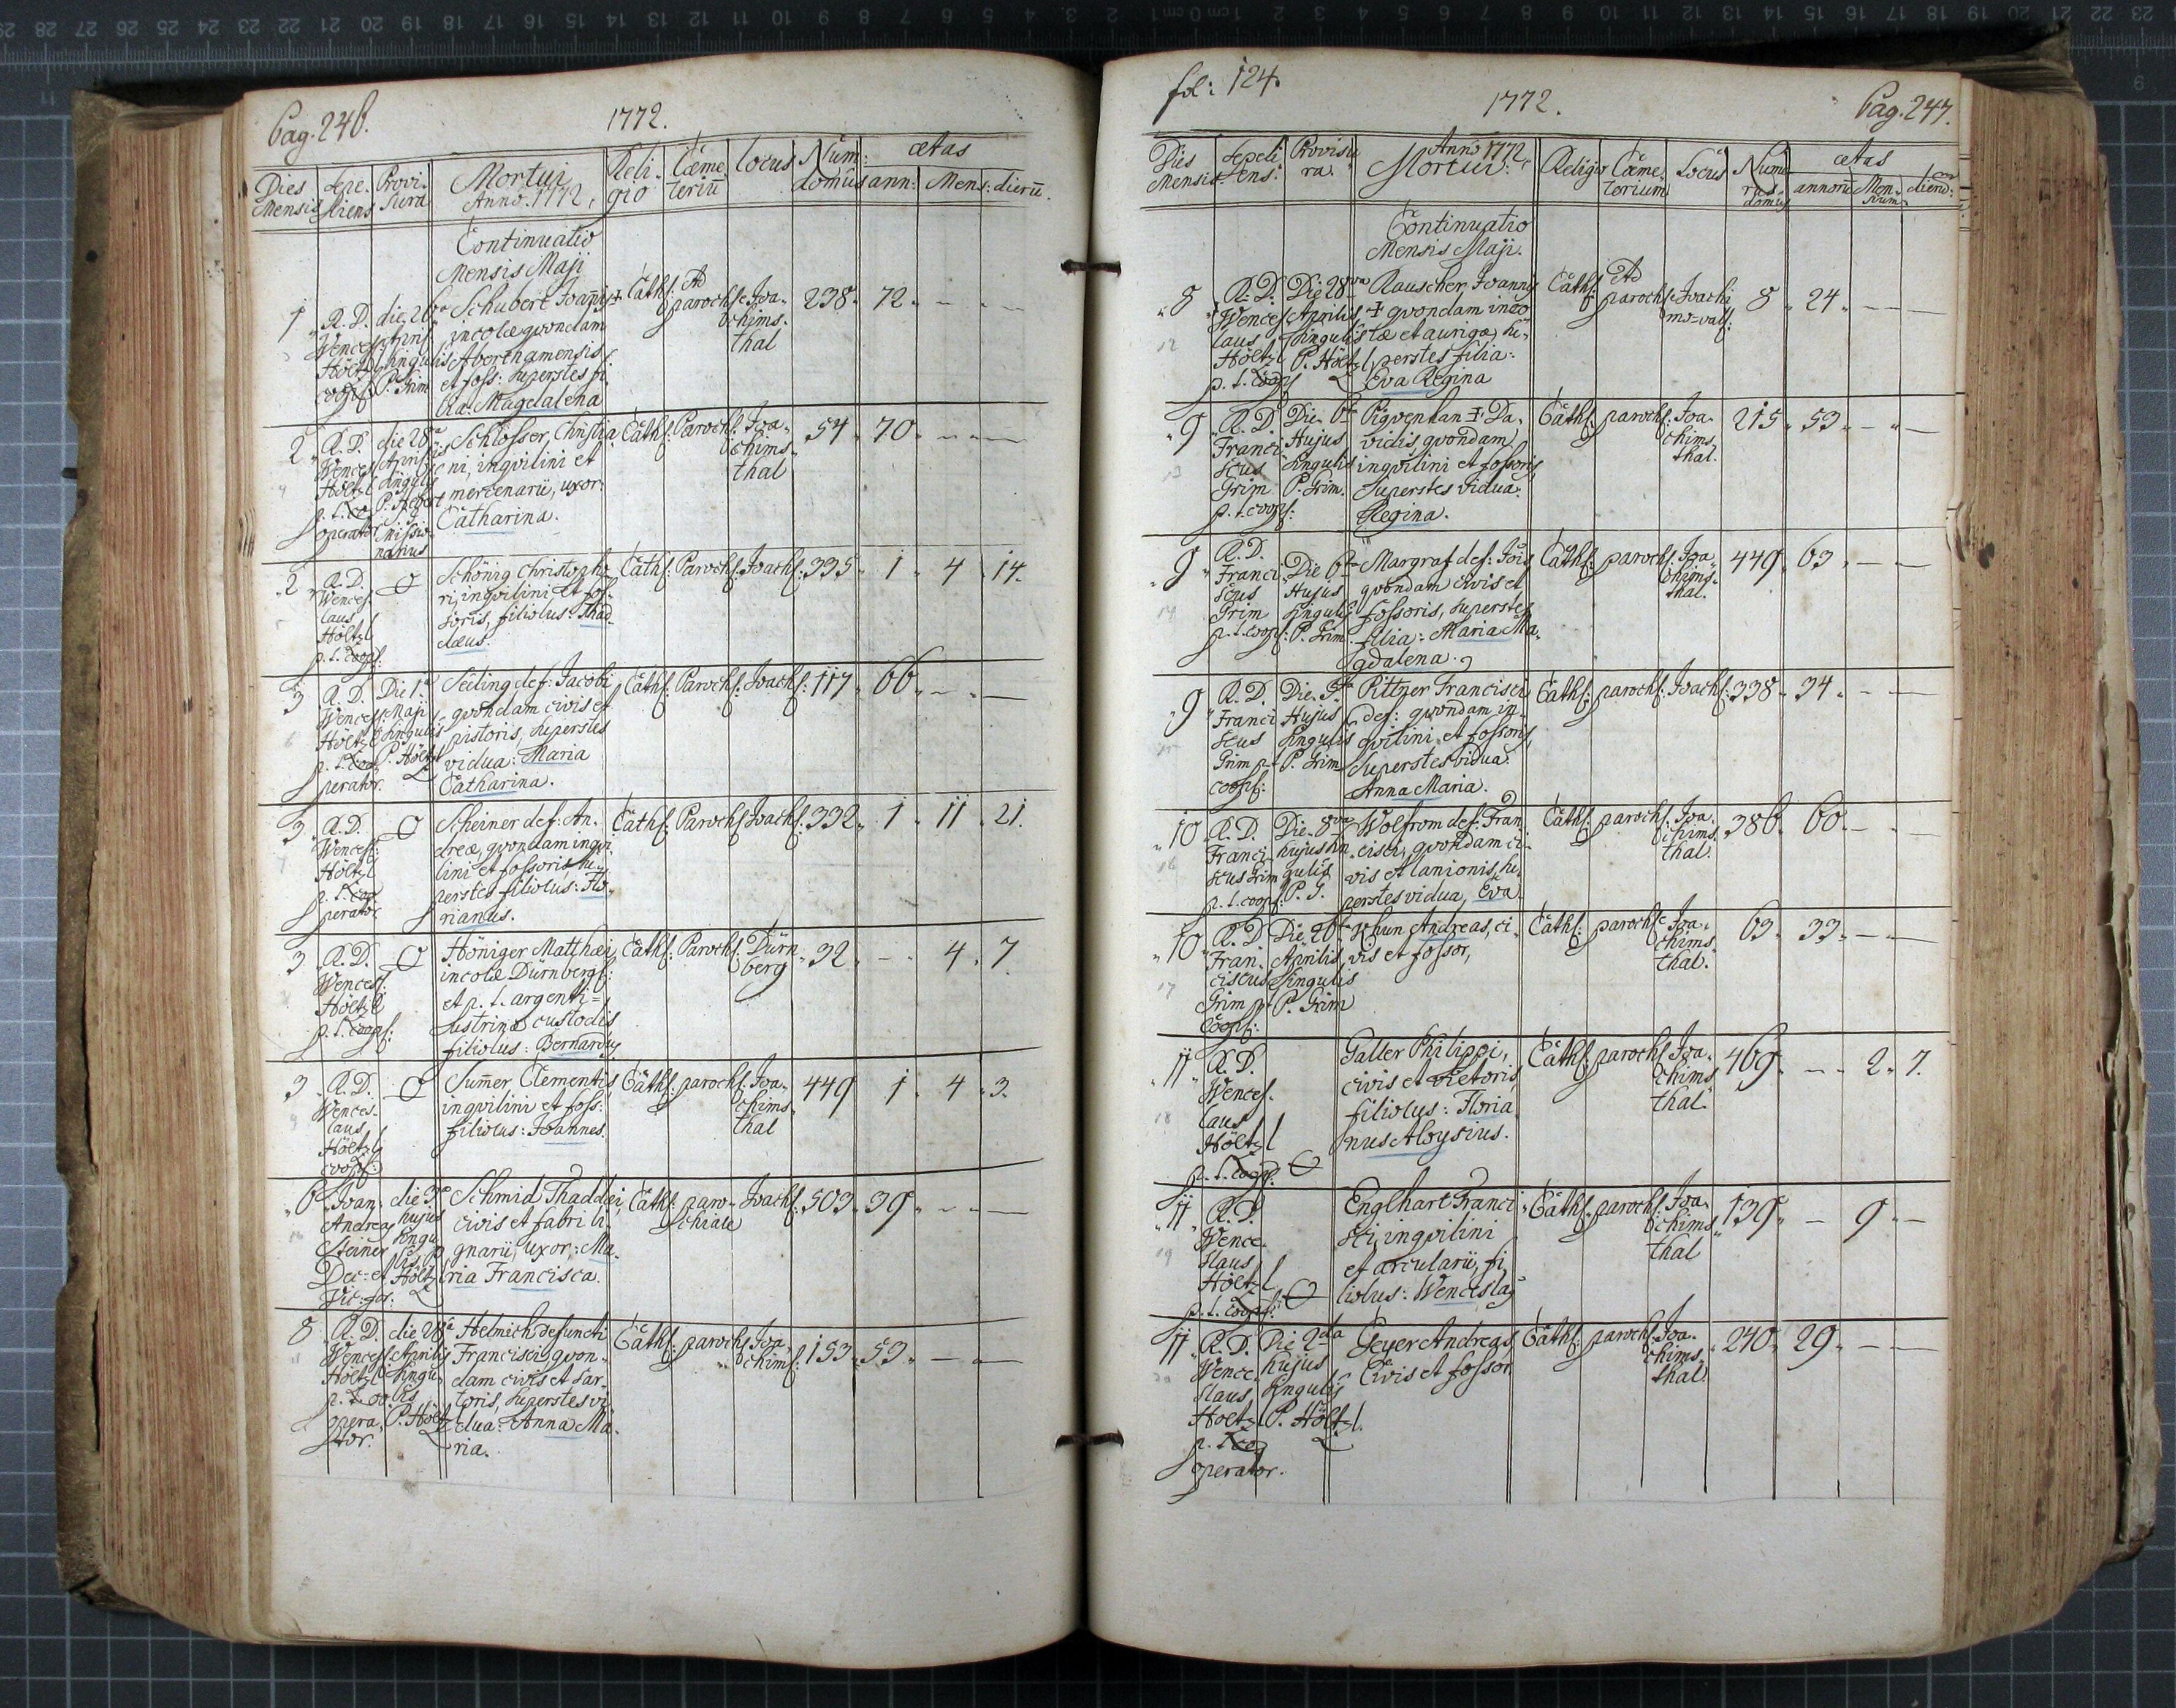 Pag. 246.
1772.
Dies Mensis
Sepeliens
Provisura
Mortui Anno. 1772,
Religio
Cœmeteriũ
locus
Num: domûs
ætas
ann: Mens: dierũ.
Continuatio
Mensis Maji
1 R. D. Wencesl. Höltzl coop: die 26ta Aprilis singulis P. Grim
Schubert Joañis
incolæ qvondam
Aberthamensis
et foss: superstes fi-
lia: Magdalena
Cath: Ad paroch: Joachimsthal 238. 72. — —
2 R. D. Wencesl Höltzl p. t. cooperator die 28a Aprilis singulis Missionarius
Schlosser, Christia-
ni, inqvilini et
mercenarii, uxor:
Catharina.
Cath: Paroch: Joachimsthal 54. 70. — —
2 R. D. Wenceslaus Höltzl p. t. coop:
Schönig Christopho-
ri, inqvilini et fos-
soris, filiolus: Thad-
dæus.
Cath: Paroch: Joach: 335. 1. 4. 14.
3 R. D. Wencesl: Höltzl p. t. cooperator. Die 1a Maji singulis P. Höltzl
Seiling def: Jacobi
qvondam civis et
pistoris, superstes
vidua: Maria
Catharina.
Cath: Paroch: Joach: 117. 66. — —
3 R. D. Wencesl: Höltzl p. t. cooperator
Scheiner def: An-
dreæ, qvondam inqvi-
lini et fossoris, su-
perstes filiolus: Flo-
rianus.
Cath: Paroch: Joach: 332. 1. 11. 21.
3 R. D. Wencesl: Höltzl p. t. coop:
Höniger Matthæi,
incolæ Dürnberg:
et p. t. argenti=
lustrinæ custodis
filiolus: Bernardus
Cath: Paroch: Dürnberg 32. — 4. 7.
3 R. D. Wenceslaus Höltzl coop:
Sum̃er, Clementis,
inqvilini et foss:
filiolus: Joannes.
Cath: paroch: Joachimsthal 449 1. 4. 3.
6 Joan. Andreas Steiner Dec: et Vic: for: die 3a hujus singulis P. Höltzl
Schmid Thaddæi,
civis et fabri li-
gnarii, uxor: Ma-
ria Francisca.
Cath: parochiale Joach: 503. 39. — —
8 R. D. Wencesl: Höltzl p. t. cooperator. die 28a Aprilis singulis P. Höltzl
Helmich, defuncti
Francisci, qvon-
dam civis et sar-
toris, superstes vi-
dua: Anna Ma-
ria.
Cath: paroch: Joachims: 153. 53. — —
fol: 124.
1772.
Pag. 247.
Dies Mensis.
Sepeliens.
Provisura.
Anno 1772, Mortui:
Religio
Cœmeterium
Locus
Numerus domûs
ætas
annorũ Mensium dierũ:
Continuatio
Mensis Maji.
8 R. D. Wenceslaus Höltzl p. t. coop Die 28va Aprilis, singulis P. Höltzl
Rauscher, Joannis
✝ qvondam inco-
læ et aurigæ, su-
perstes filia:
Eva Regina
Cath: Ad paroch: Joachims=vall: 8. 24. — —
9 R. D. Franciscus Grim p. t. coop: Die 6ta Hujus singulis P. Grim.
✝ Da-
vidis qvondam
inqvilini et fossoris,
superstes vidua:
Regina.
Cath: paroch: Joachimsthal. 215. 53. — —
9 R. D. Franciscus Grim p. t. coop: Die 6ta Hujus singulis P. Grim.
Margraf def: Jois
qvondam civis et
fossoris, superstes
filia: Maria Ma-
gdalena.
Cath: paroch: Joachimsthal. 449. 63. — —
9 R. D. Franciscus Grim p. t. coop: Die Hujus singulis P. Grim
Pittner Francisci
def: qvondam in-
qvilini et fossoris,
superstes vidua.
Anna Maria.
Cath: paroch: Joach: 338. 34. — —
10 R. D. Franciscus Grim p. t. coop: Die 8va hujus singulis P. G.
Wolfrom def: Fran-
cisci, qvondam ci-
vis et lanionis, su-
perstes vidua, Eva.
Cath: paroch: Joachimsthal. 386. 60. — —
10 R. D. Franciscus Grim p. t. coop: Die 26ta Aprilis singulis P. Grim
Khun Andreas, ci-
vis et fossor,
Cath: paroch: Joachimsthal. 63. 33. — —
11 R. D. Wenceslaus Höltzl p. t. coop:
Galler Philippi,
civis et vietoris
filiolus: Floria-
nus Aloysius.
Cath: paroch: Joachimsthal. 469. — 2. 7.
11 R. D. Wenceslaus Höltzl p. t. coop:
Englhart Franci-
sci, inqvilini
et arcularii, fi-
liolus: Wenceslaus
Cath: paroch: Joachimsthal 139. — 9. —
11 R. D. Wenceslaus Höltzl p. t. cooperator. Die 2da hujus singulis P. Höltzl.
Geyer Andreas,
Civis et fossor.
Cath: paroch: Joachimsthal. 240. 29. — —